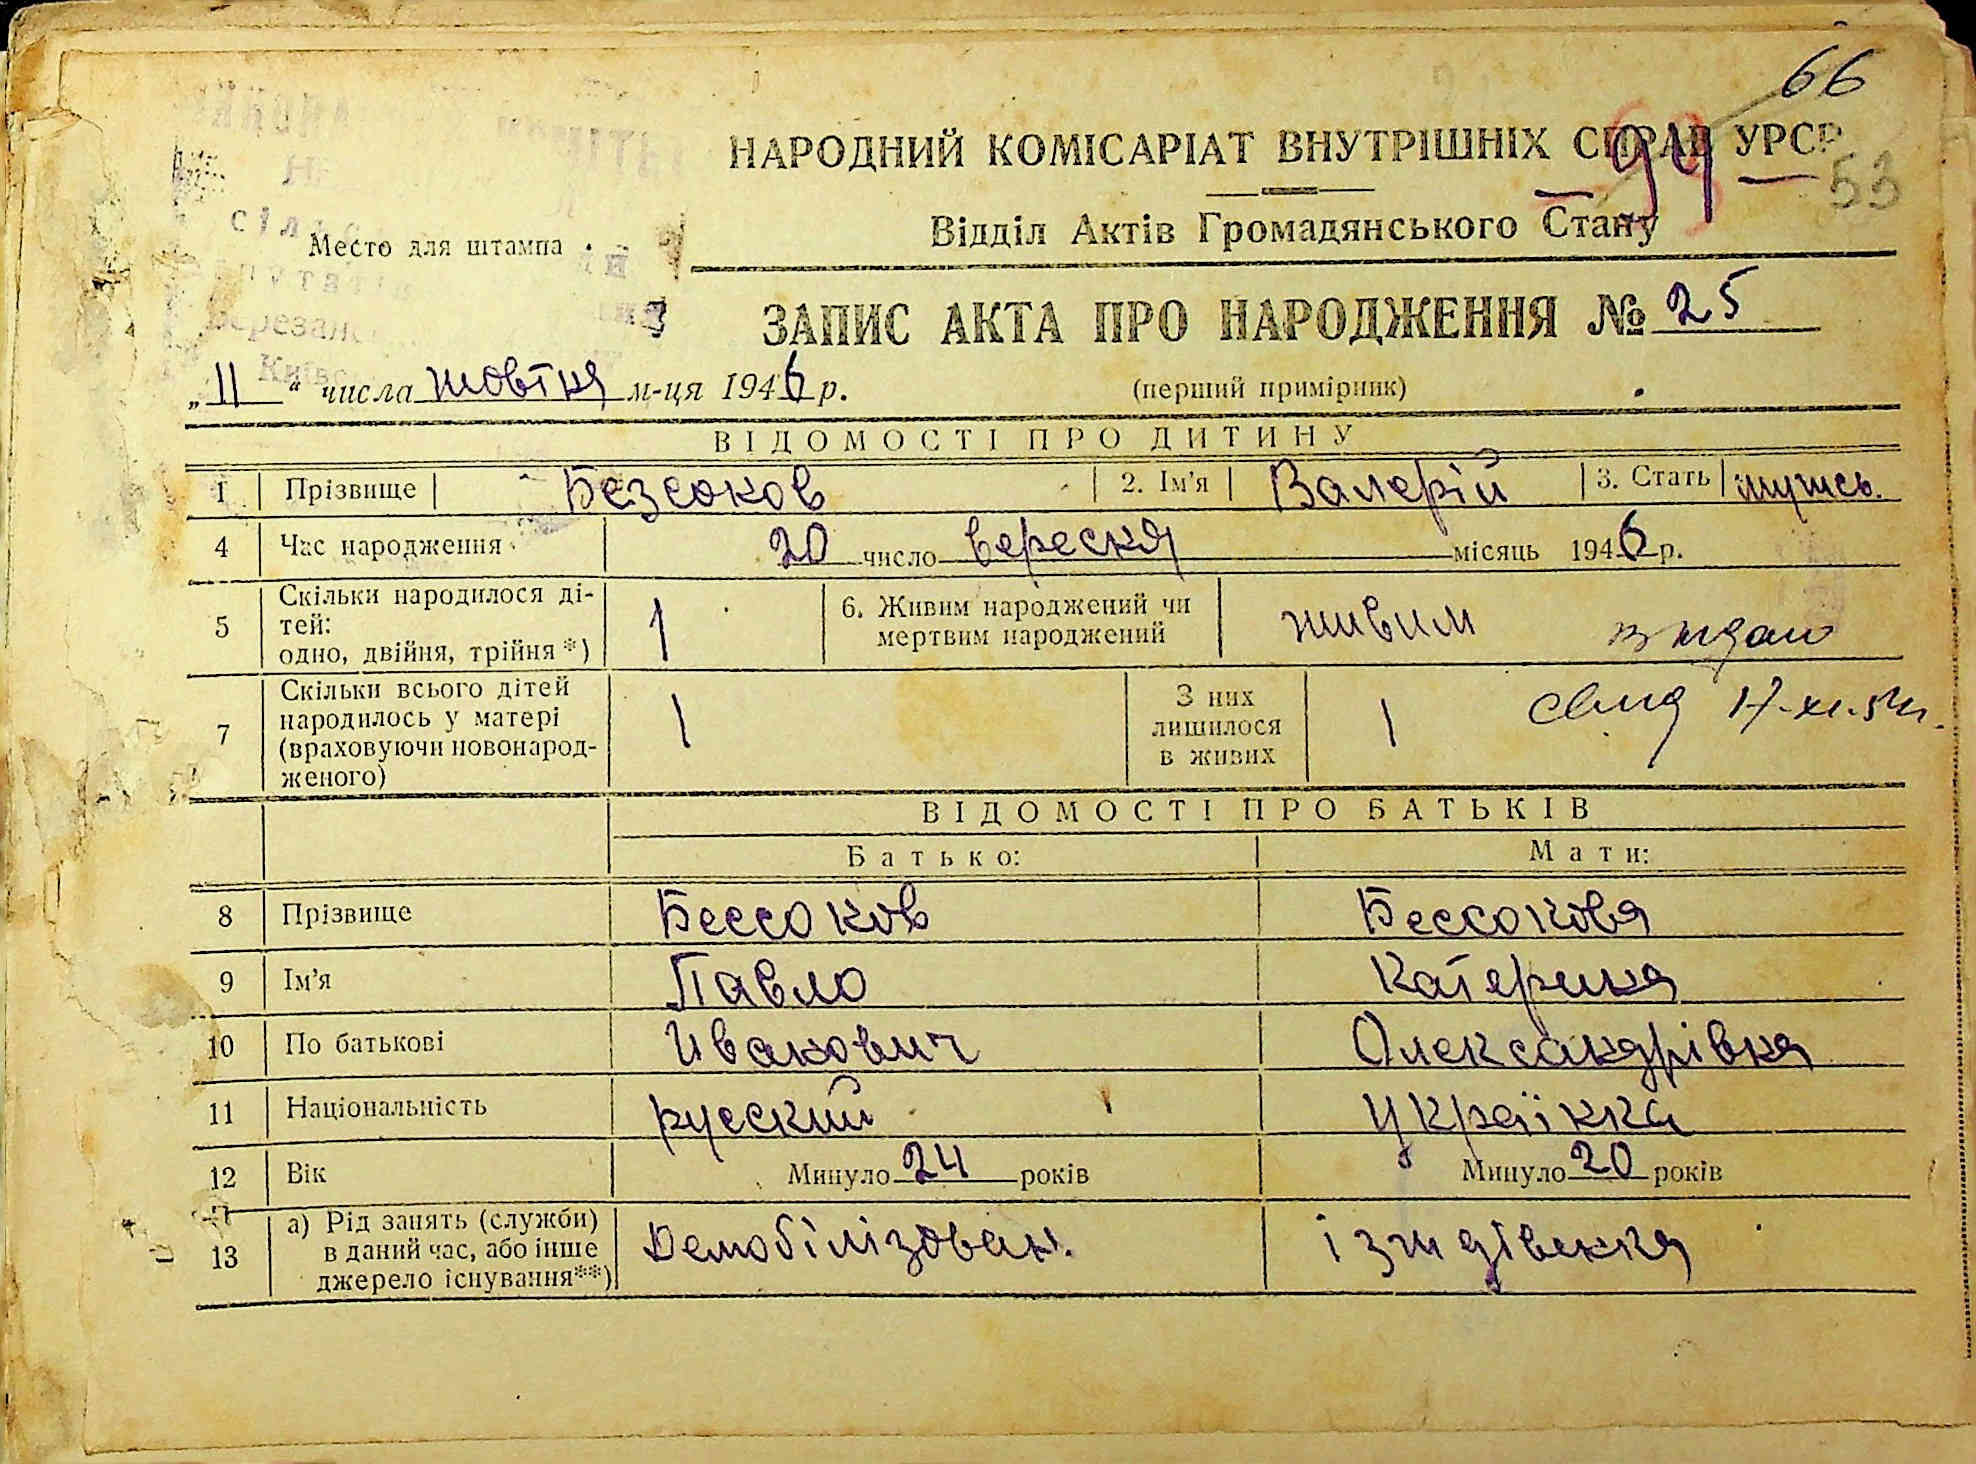 66
НАРОДНИЙ КОМІСАРІАТ ВНУТРІШНІХ СПРАВ УРСР
94
53
Відділ Актів Громадянського Стану
Место для штампа
ЗАПИС АКТА ПРО НАРОДЖЕННЯ № 25
„11“ числа жовтня м-ця 1946 р. (перший примірник)
ВІДОМОСТІ ПРО ДИТИНУ
1 Прізвище Безсоков 2. Ім'я Валерій 3. Стать мужсь.
4 Час народження 20 число вересня місяць 1946 р.
5 Скільки народилося ді-
тей:
одно, двійня, трійня *) 1
6. Живим народжений чи
мертвим народжений живим
7 Скільки всього дітей
народилось у матері
(враховуючи новонарод-
женого) 1
З них
лишилося
в живих 1
17-XI-54
ВІДОМОСТІ ПРО БАТЬКІВ
Батько: Мати:
8 Прізвище Бессоков Бессокова
9 Ім'я Павло Катерина
10 По батькові Иванович Олександрівна
11 Національність русский українка
12 Вік Минуло 24 років Минуло 20 років
13 а) Рід занять (служби)
в даний час, або інше
джерело існування**) Демобілізован. іждівенка